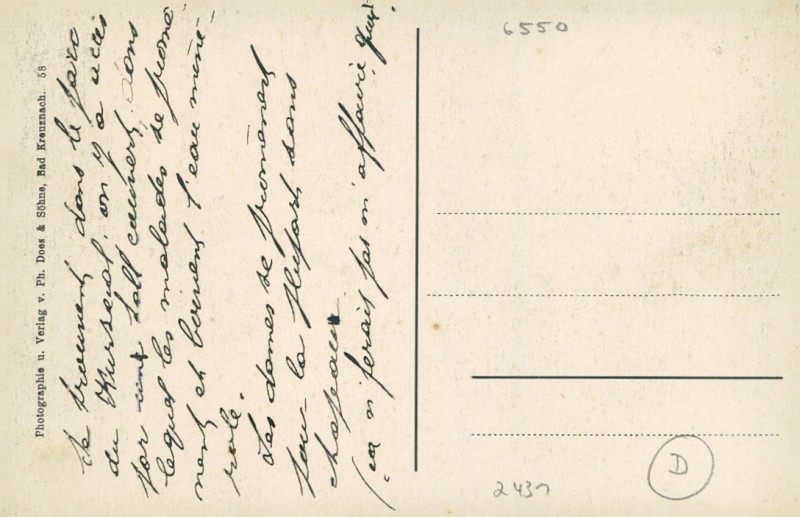 Photographie u. Verlag v. Ph. Does & Söhne, Bad Kreuznach. 58
se trouvent dans le parc
du Kursaal. on y a accès
par hall couvert dans
lequel les malades se promè-
nent et boivent l'eau miné-
rale.
Les dames se promènent
pour la plupart sans
chapeau
(ça n'ferait pas m'affaire
6550
2431
D